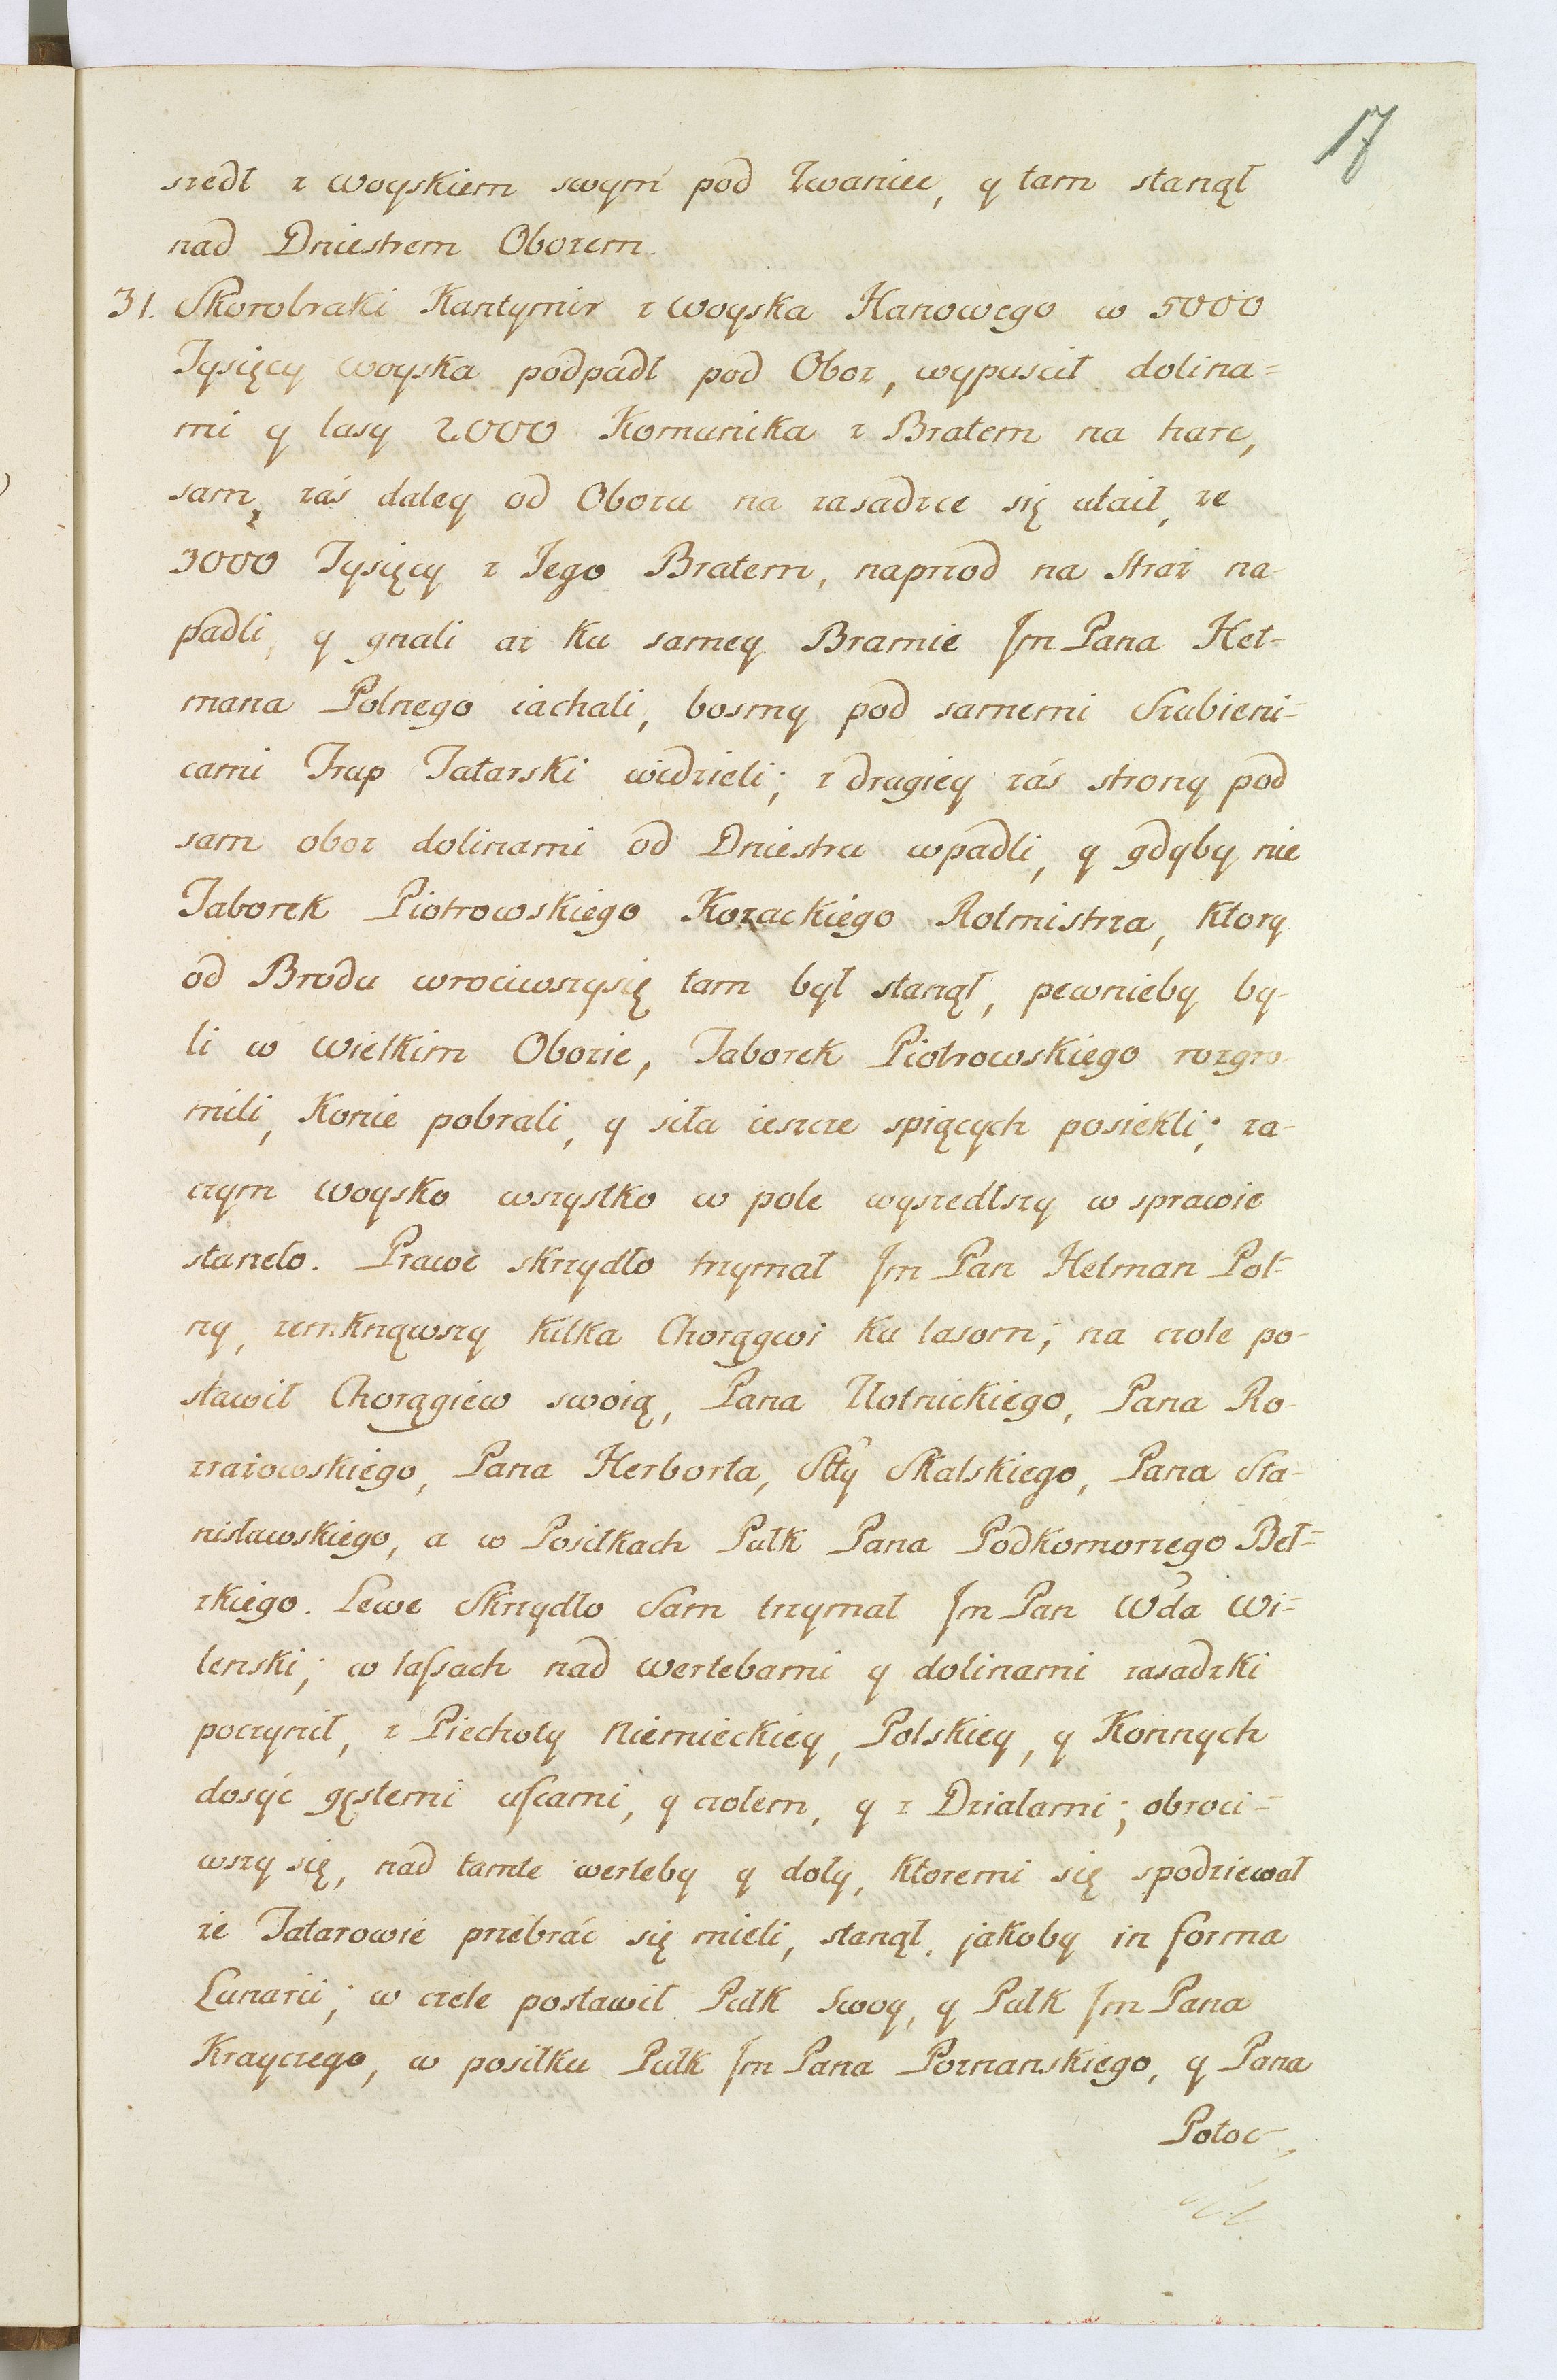 17
szedł z woyskiem swym pod Żwaniec, y tam stanął
nad Dniestrem Obozem.
31. Skorobraki Kantymir z woyska Hanowego w 5000
Tysięcy woyska podpadł pod Oboz, wypuscił dolina=
mi y lasy 2000 Komunika z Bratem na harc,
sam zaś daley od Obozu na zasadzce się utaił, ze
3000 Tysięcy z Jego Bratem, naprzod na Straż na-
padli, y gnali aż ku samey Bramie Jm Pana Het-
mana Polnego iachali, bosmy pod samemi Szubieni-
cami Trup Tatarski widzieli; z drugiey zaś strony pod
sam oboz dolinami od Dniestru wpadli, y gdyby nie
Taborek Piotrowskiego Kozackiego Rotmistrza, ktory
od Brodu wrociwszysię tam był stanął, pewnieby by-
li w wielkim Obozie, Taborek Piotrowskiego rozgro-
mili, Konie pobrali, y siła ieszcze spiących posiekli; za-
czym woysko wszystko w pole wyszedłszy w sprawie
staneło. Prawe skrzydło trzymał Jm Pan Hetman Pol-
ny, zemknąwszy kilka Chorągwi ku lasom; na czole po-
stawił Chorągiew swoią, Pana Złotnickiego, Pana Ro-
zrażowskiego, Pana Herborta, Stty Skalskiego, Pana Sta-
nisławskiego, a w Posiłkach Pułk Pana Podkomorzego Beł=
zkiego. Lewe Skrzydło Sam trzymał Jm Pan Wda Wi=
lenski; w lassach nad wertebami y dolinami zasadzki
poczynił, z Piechoty Niemieckiey, Polskiey, y Konnych
dosyć gęstemi ufcami, y czołem, y z Działami; obroci=
wszy się, nad tamte werteby y doły, ktoremi się spodziewał
że Tatarowie przebrać się mieli, stanął, jakoby in forma
Lunarii; w czele postawił Pułk Swoy, y Pułk Jm Pana
Krayczego, w posiłku Pułk Jm Pana Poznanskiego, y Pana
Potoc-